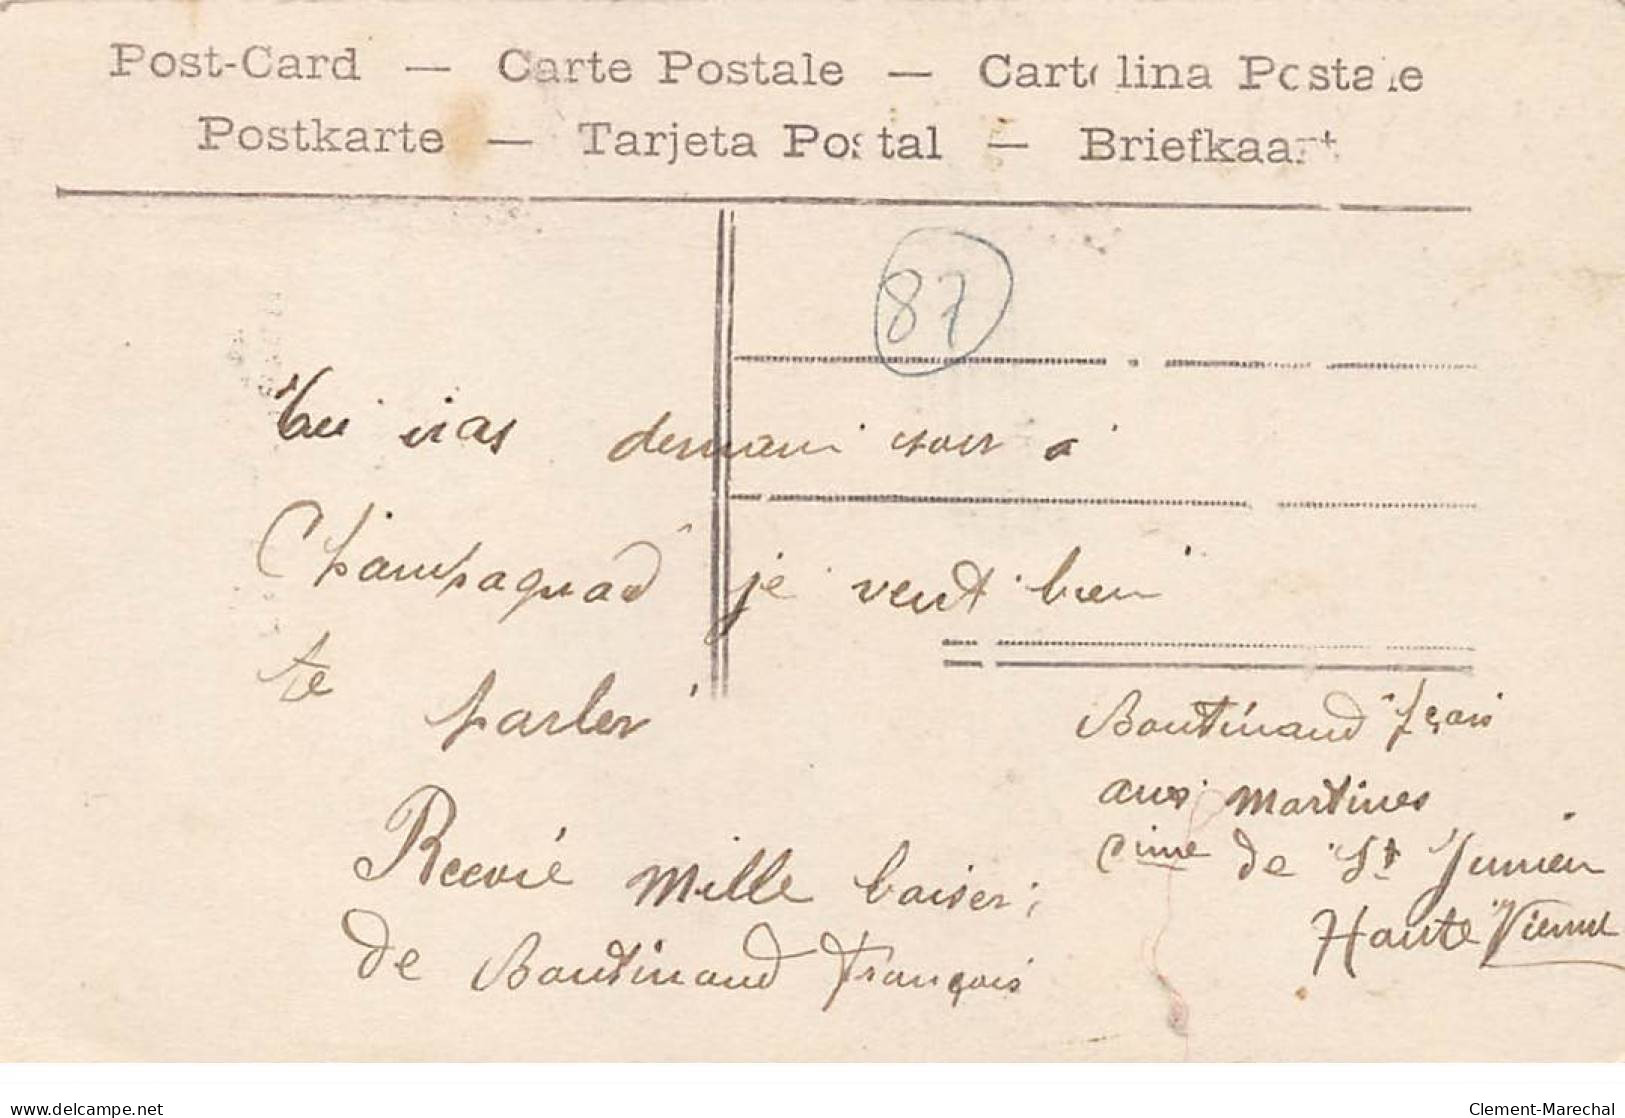 Post-Card — Carte Postale — Cartolina Postale
Postkarte — Tarjeta Postal — Briefkaart
87
Tu iras demain soir a
Champagnad je veut bien
te parler
Recevié mille baiser
de Boutinaud François
Boutinaud fçois
aux martines
Cime de St Junien
Haute Vienne
delcampe.net
Clement-Marechal